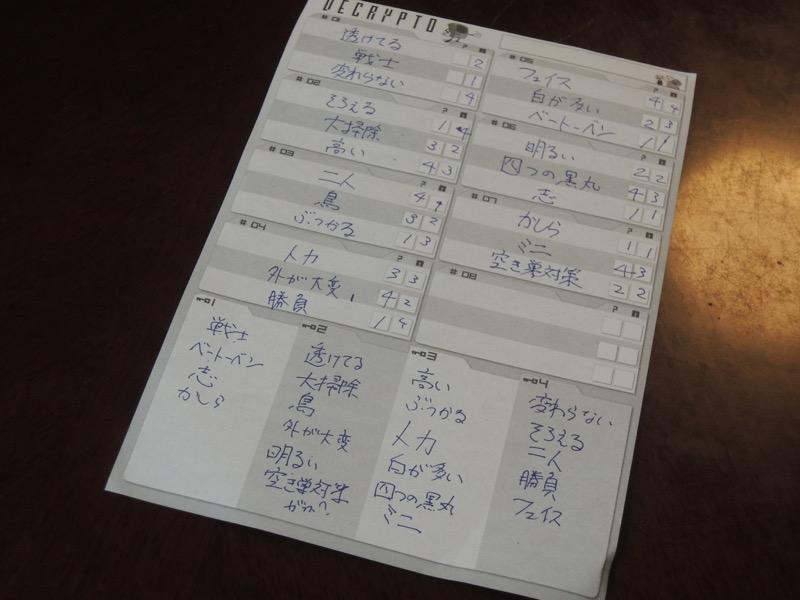 DECRYPTO
#01 ? 
透けてる 2
戦士 1
変わらない 4
#02 ?
そろえる 1 4
大掃除 3 2
高い 4 3
#03 ?
二人 4 4
鳥 3 2
ぶつかる 1 3
#04 ?
人力 3 3
外が大変 4 2
勝負 1 4
#05 ?
フェイス 4 4
白が多い 2 3
ベートーベン 1 1
#06 ?
明るい 2 2
四つの黒丸 4 3
志 1 1
#07 ?
かしら 1 1
ミニ 4 3
空き巣対策 2 2
#08 ?
1
戦士
ベートーベン
志
かしら
2
透けてる
大掃除
鳥
外が大変
明るい
空き巣対策
3
高い
ぶつかる
人力
白が多い
四つの黒丸
ミニ
4
変わらない
そろえる
二人
勝負
フェイス